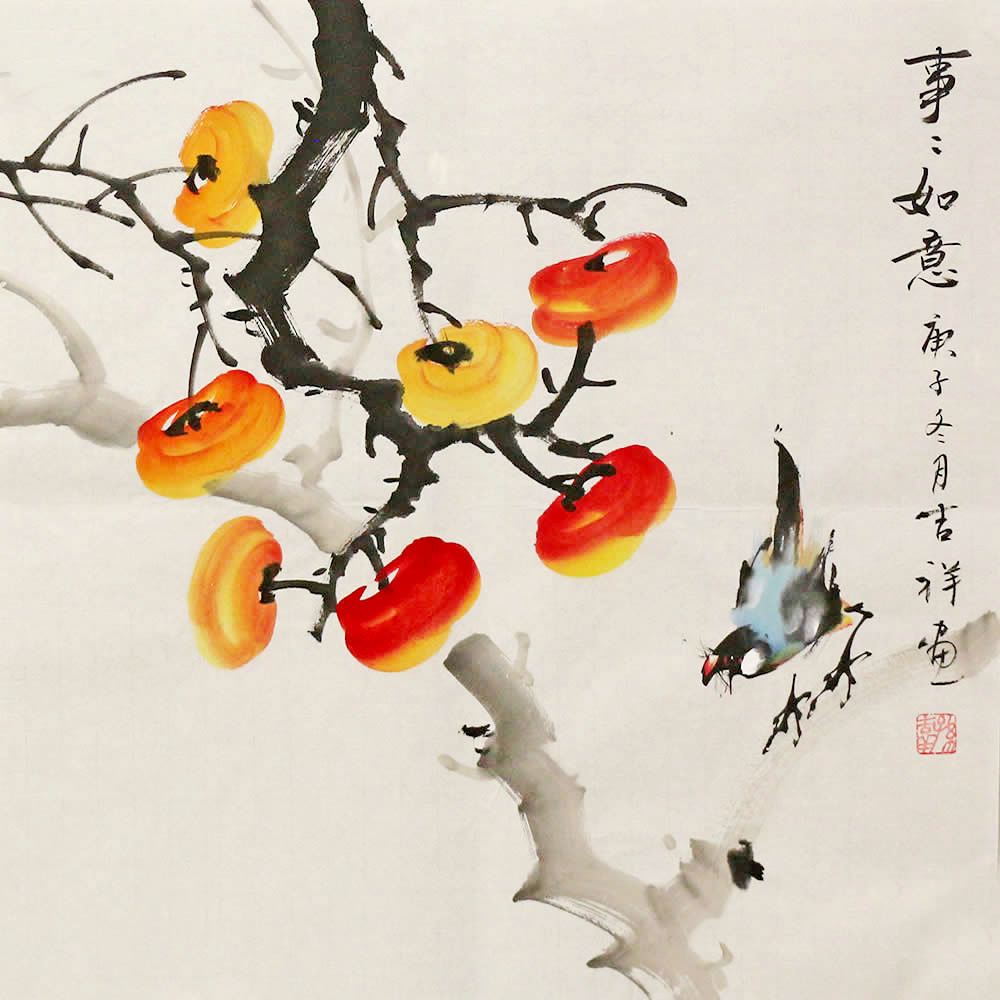 事〻如意 庚子冬月吉祥画